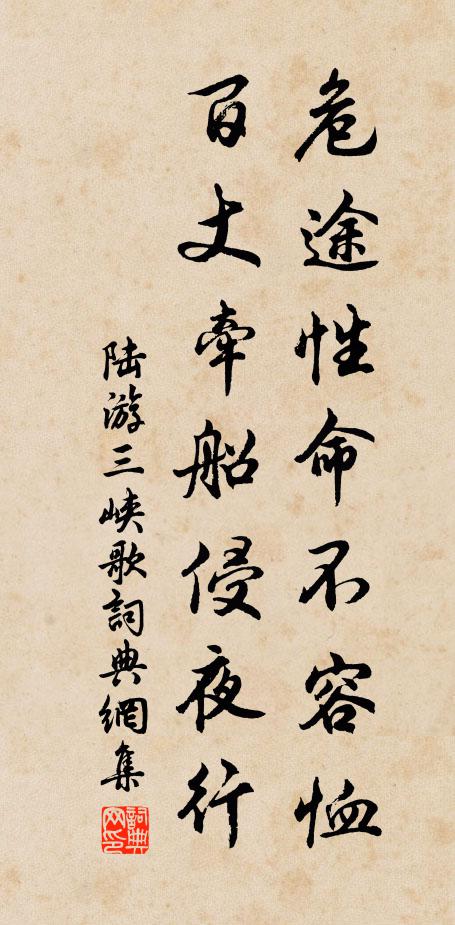 危途性命不容恤
百丈牽船侵夜行
陆游三峡歌詞典網集
詞典网印